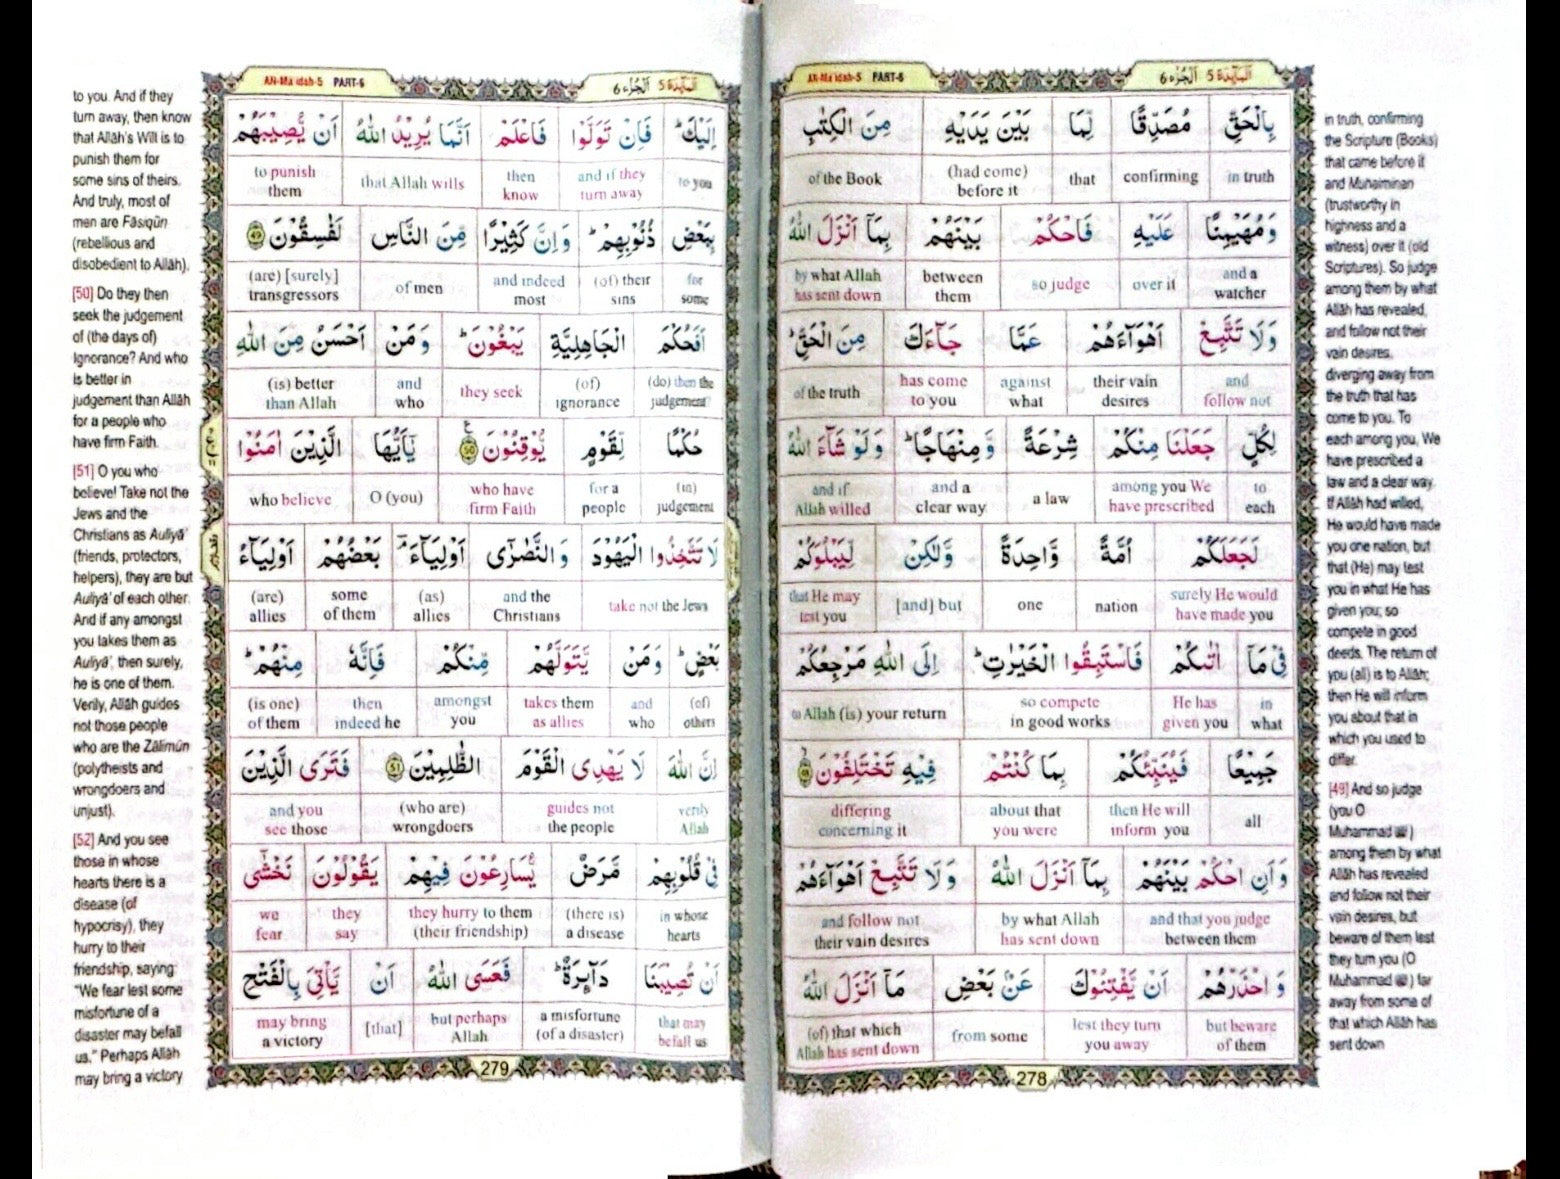 AN-Ma idah-5 PART-6 اَلْمَآئِدَة 5 اَلْجُزْء 6
بِالْحَقِّ مُصَدِّقًا لِّمَا بَيْنَ يَدَيْهِ مِنَ الْكِتٰبِ
in truth confirming that (had come) before it of the Book
وَمُهَيْمِنًا عَلَيْهِ فَاحْكُمْ بَيْنَهُمْ بِمَآ اَنْزَلَ اللّٰهُ
and a watcher over it so judge between them by what Allah has sent down
وَلَا تَتَّبِعْ اَهْوَآءَهُمْ عَمَّا جَآءَكَ مِنَ الْحَقِّ ؕ
and follow not their vain desires against what has come to you of the truth
لِكُلٍّ جَعَلْنَا مِنْكُمْ شِرْعَةً وَّمِنْهَاجًا ؕ وَلَوْ شَآءَ اللّٰهُ
to each among you We have prescribed a law and a clear way and if Allah willed
لَجَعَلَكُمْ اُمَّةً وَّاحِدَةً وَّلٰكِنْ لِّيَبْلُوَكُمْ
surely He would have made you nation one [and] but that He may test you
فِيْ مَآ اٰتٰىكُمْ فَاسْتَبِقُوا الْخَيْرٰتِ ؕ اِلَى اللّٰهِ مَرْجِعُكُمْ
in what He has given you so compete in good works to Allah (is) your return
جَمِيْعًا فَيُنَبِّئُكُمْ بِمَا كُنْتُمْ فِيْهِ تَخْتَلِفُوْنَ
all then He will inform you about that you were differing concerning it
وَاَنِ احْكُمْ بَيْنَهُمْ بِمَآ اَنْزَلَ اللّٰهُ وَلَا تَتَّبِعْ اَهْوَآءَهُمْ
and that you judge between them by what Allah has sent down and follow not their vain desires
وَاحْذَرْهُمْ اَنْ يَّفْتِنُوْكَ عَنْۢ بَعْضِ مَآ اَنْزَلَ اللّٰهُ
but beware of them lest they turn you away from some (of) that which Allah has sent down
278
in truth, confirming
the Scripture (Books)
that came before it
and Muhaiminan
(trustworthy in
highness and a
witness) over it (old
Scriptures). So judge
among them by what
Allâh has revealed,
and follow not their
vain desires,
diverging away from
the truth that has
come to you. To
each among you, We
have prescribed a
law and a clear way.
If Allâh had willed,
He would have made
you one nation, but
that (He) may test
you in what He has
given you; so
compete in good
deeds. The return of
you (all) is to Allâh;
then He will inform
you about that in
which you used to
differ.
[49] And so judge
(you O
Muhammad ﷺ)
among them by what
Allâh has revealed
and follow not their
vain desires, but
beware of them lest
they turn you (O
Muhammad ﷺ) far
away from some of
that which Allâh has
sent down
AN-Ma idah-5 PART-6 اَلْمَآئِدَة 5 اَلْجُزْء 6
اِلَيْكَ ؕ فَاِنْ تَوَلَّوْا فَاعْلَمْ اَنَّمَا يُرِيْدُ اللّٰهُ اَنْ يُّصِيْبَهُمْ
to you and if they turn away then know that Allah wills to punish them
بِبَعْضِ ذُنُوْبِهِمْ ؕ وَاِنَّ كَثِيْرًا مِّنَ النَّاسِ لَفٰسِقُوْنَ ٤٩
for some (of) their sins and indeed most of men (are) [surely] transgressors
اَفَحُكْمَ الْجَاهِلِيَّةِ يَبْغُوْنَ ؕ وَمَنْ اَحْسَنُ مِنَ اللّٰهِ
(do) then the judgement (of) ignorance they seek and who (is) better than Allah
حُكْمًا لِّقَوْمٍ يُّوْقِنُوْنَ ٥٠ يٰٓاَيُّهَا الَّذِيْنَ اٰمَنُوْا
(in) judgement for a people who have firm Faith O (you) who believe
لَا تَتَّخِذُوا الْيَهُوْدَ وَالنَّصٰرٰٓى اَوْلِيَآءَ ۘ بَعْضُهُمْ اَوْلِيَآءُ
take not the Jews and the Christians (as) allies some of them (are) allies
بَعْضٍ ؕ وَمَنْ يَّتَوَلَّهُمْ مِّنْكُمْ فَاِنَّهٗ مِنْهُمْ ؕ
(of) others and who takes them as allies amongst you then indeed he (is one) of them
اِنَّ اللّٰهَ لَا يَهْدِى الْقَوْمَ الظّٰلِمِيْنَ ٥١ فَتَرَى الَّذِيْنَ
verily Allah guides not the people (who are) wrongdoers and you see those
فِيْ قُلُوْبِهِمْ مَّرَضٌ يُّسَارِعُوْنَ فِيْهِمْ يَقُوْلُوْنَ نَخْشٰٓى
in whose hearts (there is) a disease they hurry to them (their friendship) they say we fear
اَنْ تُصِيْبَنَا دَآئِرَةٌ ؕ فَعَسَى اللّٰهُ اَنْ يَّاْتِىَ بِالْفَتْحِ
that may befall us a misfortune (of a disaster) but perhaps Allah [that] may bring a victory
279
to you. And if they
turn away, then know
that Allâh's Will is to
punish them for
some sins of theirs.
And truly, most of
men are Fâsiqûn
(rebellious and
disobedient to Allâh).
[50] Do they then
seek the judgement
of (the days of)
Ignorance? And who
is better in
judgement than Allâh
for a people who
have firm Faith.
[51] O you who
believe! Take not the
Jews and the
Christians as Auliyâ'
(friends, protectors,
helpers), they are but
Auliyâ' of each other.
And if any amongst
you takes them as
Auliyâ', then surely,
he is one of them.
Verily, Allâh guides
not those people
who are the Zâlimûn
(polytheists and
wrongdoers and
unjust).
[52] And you see
those in whose
hearts there is a
disease (of
hypocrisy), they
hurry to their
friendship, saying:
"We fear lest some
misfortune of a
disaster may befall
us." Perhaps Allâh
may bring a victory